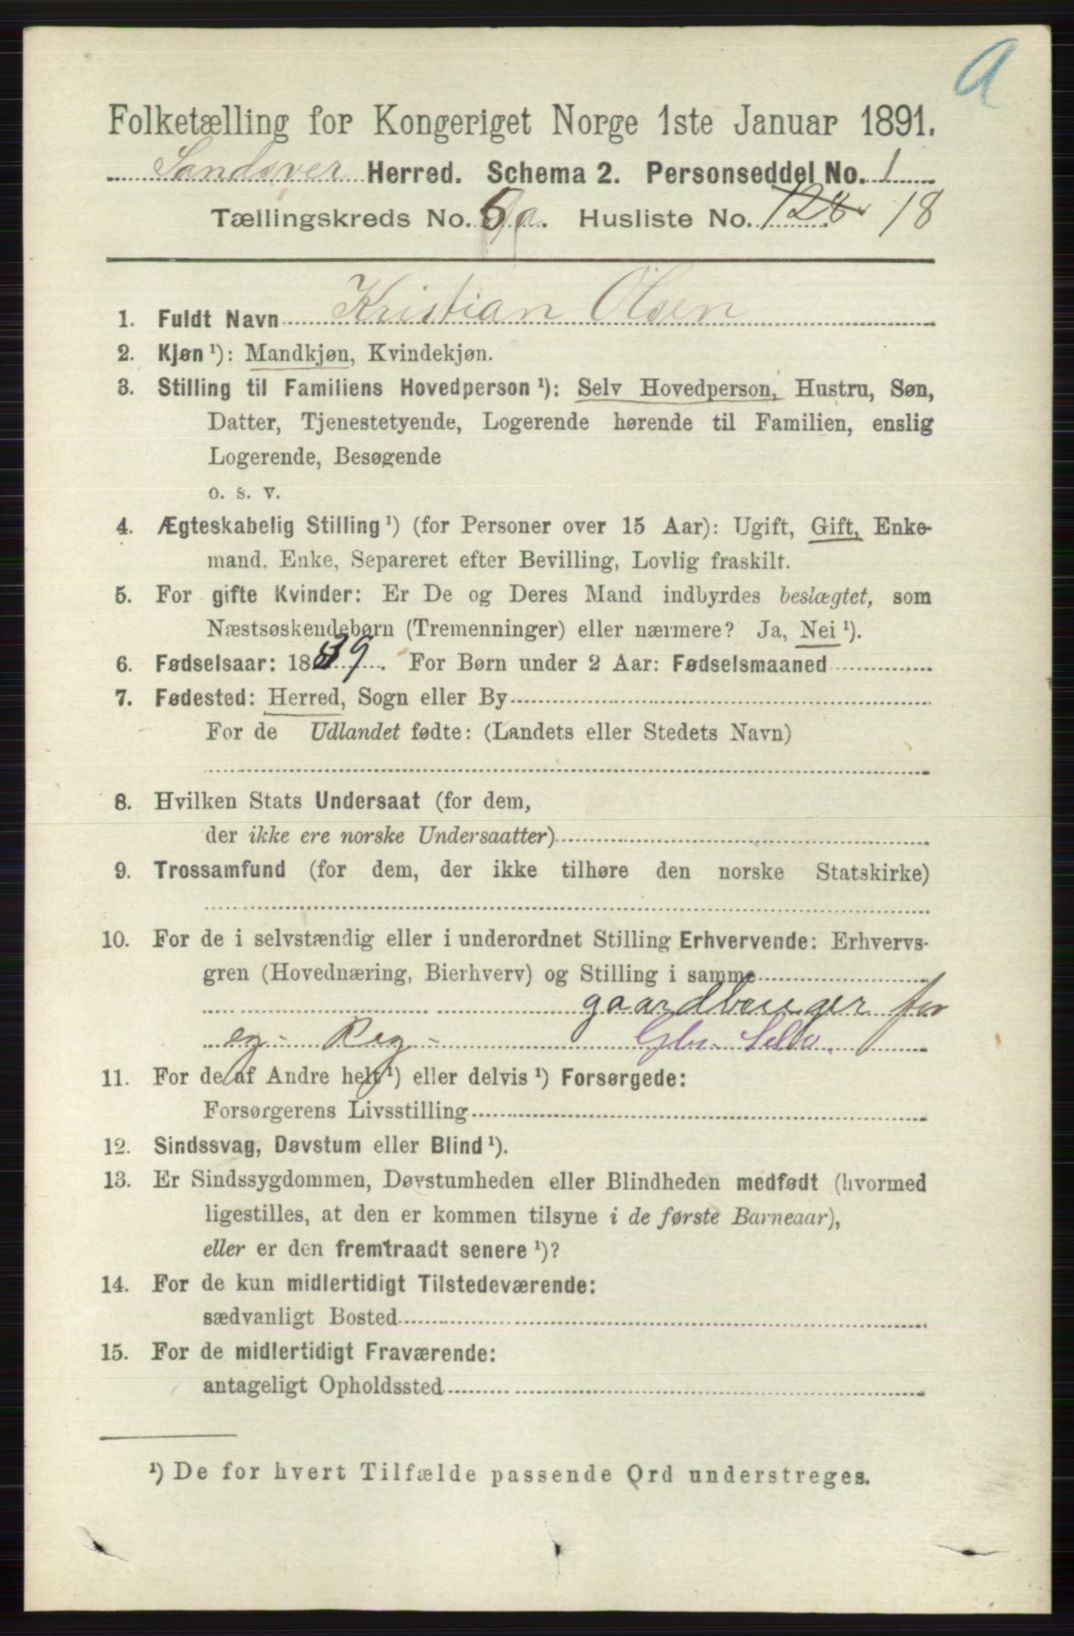 a
Folketælling for Kongeriget Norge 1ste Januar 1891.
Sandsver Herred. Schema 2. Personseddel No. 1
Tællingskreds No. 6a. Husliste No. 128 18
1. Fuldt Navn Kristian Olsen
2. Kjøn ¹): Mandkjøn, Kvindekjøn.
3. Stilling til Familiens Hovedperson ¹): Selv Hovedperson, Hustru, Søn,
Datter, Tjenestetyende, Logerende hørende til Familien, enslig
Logerende, Besøgende
o. s. v.
4. Ægteskabelig Stilling ¹) (for Personer over 15 Aar): Ugift, Gift, Enke-
mand, Enke, Separeret efter Bevilling, Lovlig fraskilt.
5. For gifte Kvinder: Er De og Deres Mand indbyrdes beslægtet, som
Næstsøskendebørn (Tremenninger) eller nærmere? Ja, Nei ¹).
6. Fødselsaar: 1839. For Børn under 2 Aar: Fødselsmaaned
7. Fødested: Herred, Sogn eller By
For de Udlandet fødte: (Landets eller Stedets Navn)
8. Hvilken Stats Undersaat (for dem,
der ikke ere norske Undersaatter)
9. Trossamfund (for dem, der ikke tilhøre den norske Statskirke)
10. For de i selvstændig eller i underordnet Stilling Erhvervende: Erhvervs-
gren (Hovednæring, Bierhverv) og Stilling i samme
gaardbruger for
eg- Reg- Gbr. Selv.
11. For de af Andre helt ¹) eller delvis ¹) Forsørgede:
Forsørgerens Livsstilling
12. Sindssvag, Døvstum eller Blind ¹).
13. Er Sindssygdommen, Døvstumheden eller Blindheden medfødt (hvormed
ligestilles, at den er kommen tilsyne i de første Barneaar),
eller er den fremtraadt senere ¹)?
14. For de kun midlertidigt Tilstedeværende:
sædvanligt Bosted
15. For de midlertidigt Fraværende:
antageligt Opholdssted
¹) De for hvert Tilfælde passende Ord understreges.